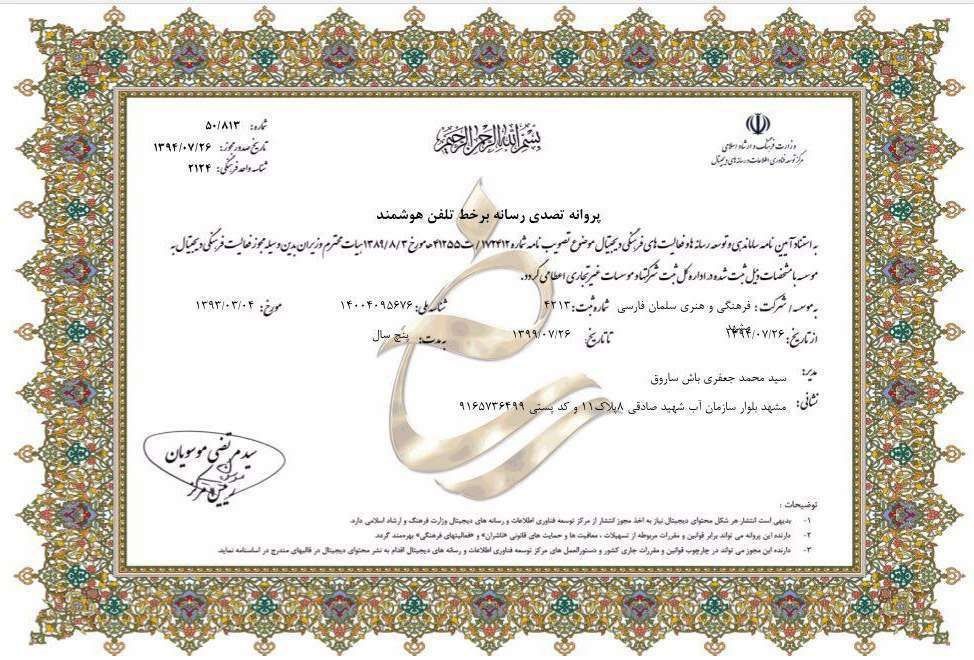 بسم الله الرحمن الرحیم
وزارت فرهنگ و ارشاد اسلامی
مرکز توسعه فناوری اطلاعات و رسانه های دیجیتال
شماره: ۵۰/۸۱۳
تاریخ صدور مجوز: ۱۳۹۴/۰۷/۲۶
شناسه واحد فرهنگی: ۲۱۲۴
پروانه تصدی رسانه برخط تلفن هوشمند
به استناد آیین نامه ساماندهی و توسعه رسانه ها و فعالیت های فرهنگی دیجیتال موضوع تصویب نامه شماره ۱۷۲۴۱۲/ت۴۱۲۵۵ه مورخ ۱۳۸۹/۸/۳ هیات محترم وزیران بدین وسیله مجوز فعالیت فرهنگی دیجیتال به
موسسه با مشخصات ذیل ثبت شده در اداره کل ثبت شرکتها و موسسات غیرتجاری اعطا می گردد.
به موسسه / شرکت: فرهنگی و هنری سلمان فارسی شماره ثبت: ۴۲۱۳ شناسه ملی: ۱۴۰۰۴۰۹۵۶۷۶ مورخ: ۱۳۹۳/۰۳/۰۴
مشهد
از تاریخ: ۱۳۹۴/۰۷/۲۶ تا تاریخ: ۱۳۹۹/۰۷/۲۶ به مدت: پنج سال
مدیر: سید محمد جعفری باش ساروق
نشانی: مشهد بلوار سازمان آب شهید صادقی ۸پلاک۱۱ و کد پستی ۹۱۶۵۷۳۶۴۹۹
سید مرتضی موسویان
رییس مرکز
توضیحات :
۱- بدیهی است انتشار هر شکل محتوای دیجیتال نیاز به اخذ مجوز انتشار از مرکز توسعه فناوری اطلاعات و رسانه های دیجیتال وزارت فرهنگ و ارشاد اسلامی دارد.
۲- دارنده این پروانه می تواند برابر قوانین و مقررات مربوطه از تسهیلات ، معافیت ها و حمایت های قانونی «ناشران» و «فعالیتهای فرهنگی» بهره‌مند گردد.
۳- دارنده این مجوز می تواند در چارچوب قوانین و مقررات جاری کشور و دستورالعمل های مرکز توسعه فناوری اطلاعات و رسانه های دیجیتال اقدام به نشر محتوای دیجیتال در قالبهای مندرج در اساسنامه نماید.